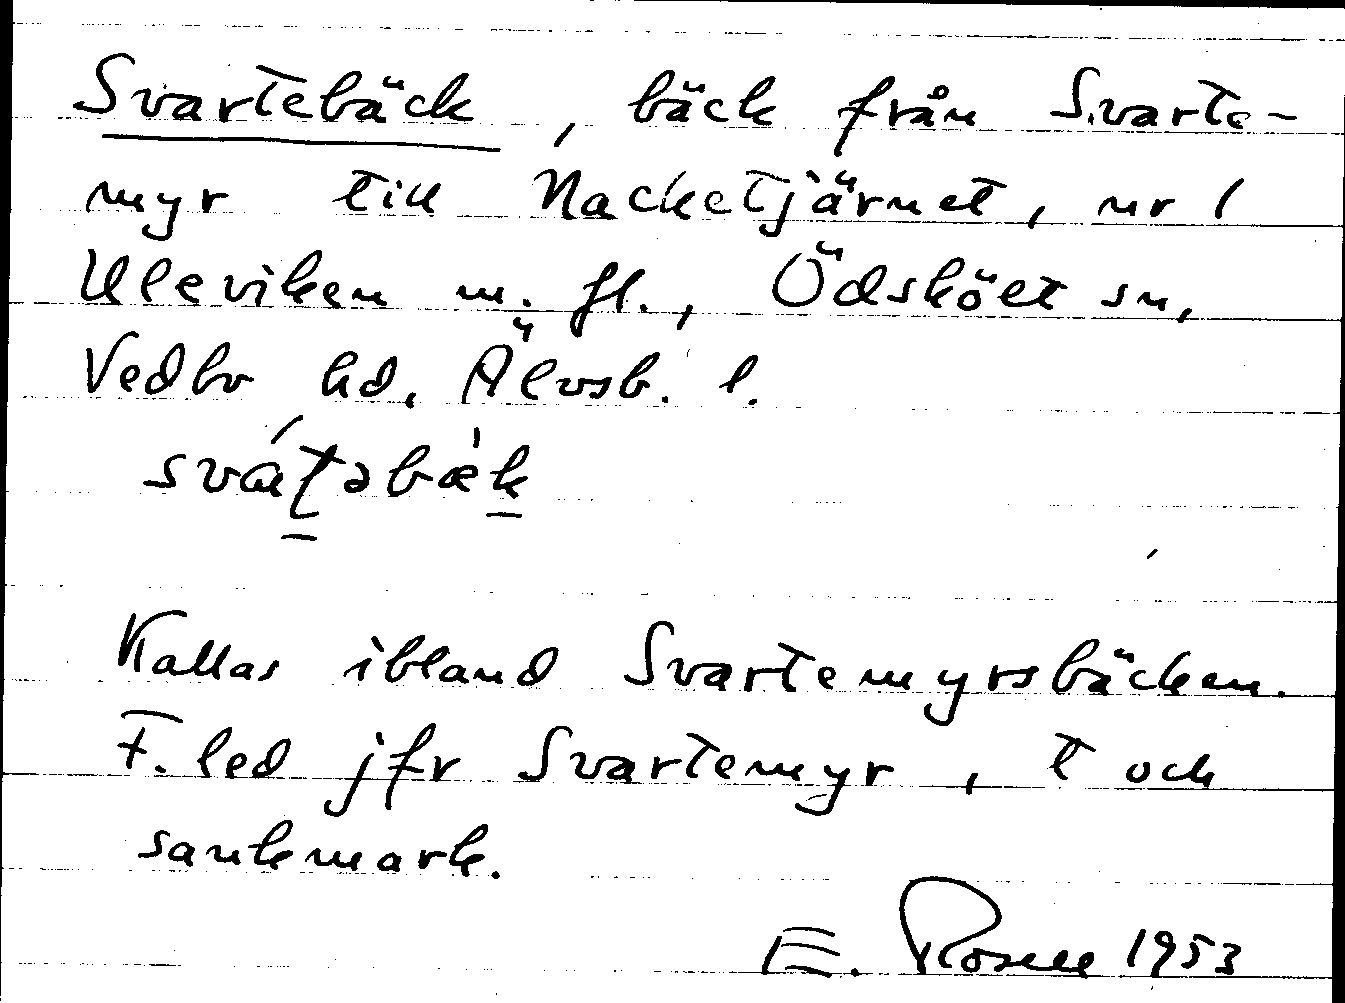 Svartebäck, bäck från Svarte-
myr till Nacketjärnet, nr 1
Uleviken m. fl., Ödskölt sn,
Vedbo hd, Älvsb. l.
Kallas ibland Svartemyrsbäcken.
F. led jfr Svartemyr, t och
sankmark.
E. Rosell 1953